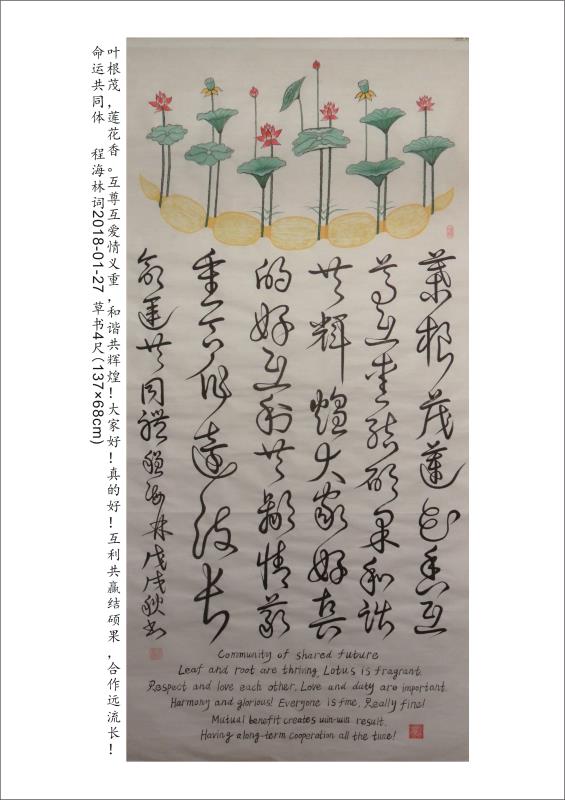 叶根茂，莲花香。互尊互爱情义重，和谐共辉煌！大家好！真的好！互利共赢结硕果，合作远流长！
命运共同体 程海林词2018-01-27 草书4尺(137×68cm)
葉根茂蓮花香互
尊互愛結碩果和諧
共輝煌大家好真
的好互利共贏情義
重合作遠流长
命運共同體 程海林戊戌秋书
Community of shared future
Leaf and root are thriving, Lotus is fragrant.
Respect and love each other, Love and duty are important.
Harmony and glorious! Everyone is fine, Really fine!
Mutual benefit creates win-win result.
Having a long-term cooperation all the time!